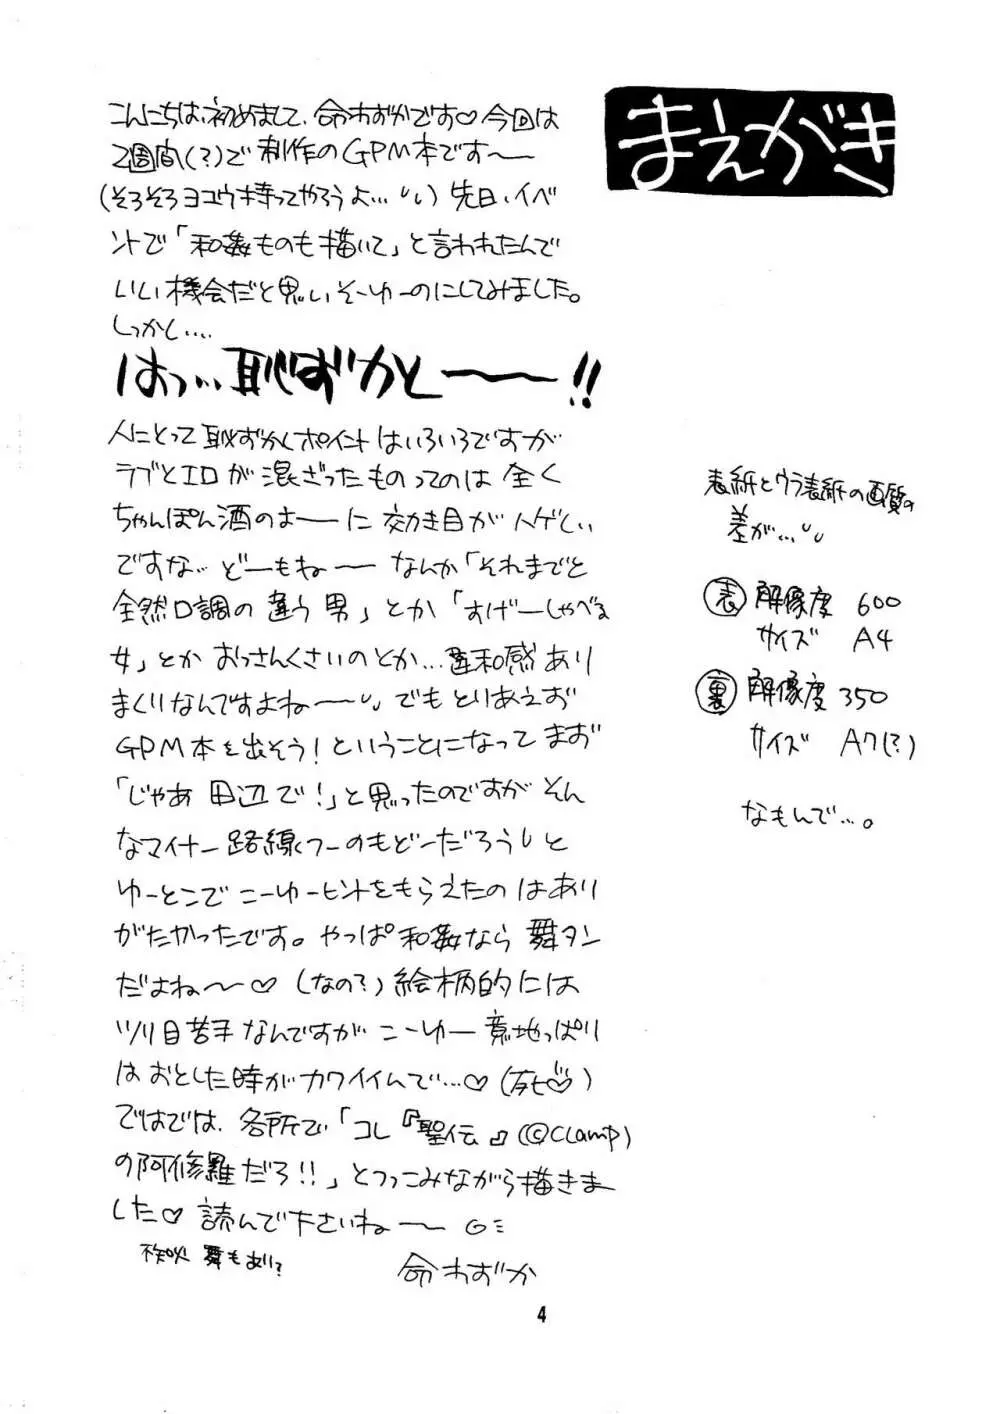 まえがき
こんにちは、初めまして、命わずかです♡今回は
2週間(?)で制作のGPM本です〜〜
(そろそろヨユウ持ってやろうよ…) 先日、イベ
ントで「和姦ものも描いて」と言われたんで
いい機会だと思いそーゆーのにしてみました。
しっかし‥‥
はっ…恥ずかしーー!!
人にとって恥ずかしポイントはいろいろですが
ラブとエロが混ざったものってのは全く
ちゃんぽん酒のよーに効き目がハゲしい
ですな… どーもねー なんか「それまでと
全然口調の違う男」とか「すげーしゃべる
女」とかおっさんくさいのとか…違和感あり
まくりなんですよね〜〜 でもとりあえず
GPM本を出そう!ということになってまず
「じゃあ田辺で!」と思ったのですがそん
なマイナー路線つーのもどーだろうと
ゆーとこでこーゆーヒントをもらえたのはあり
がたかったです。やっぱ和姦なら舞タン
だよね〜〜♡ (なの?)絵柄的には
ツリ目苦手なんですがこーゆー意地っぱり
はおとした時がカワイイんで…♡(死♡)
ではでは、各所で「コレ『聖伝』(©CLAMP)
の阿修羅だろ!!」とつっこみながら描きま
した♡ 読んで下さいね〜〜
不知火 舞もあり?
命わずか
表紙とウラ表紙の画質の
差が…
表 解像度 600
サイズ A4
裏 解像度 350
サイズ A7(?)
なもんで…。
4